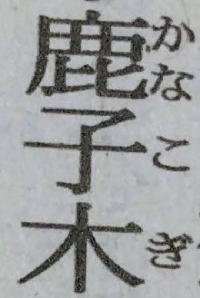 鹿子木
かなこぎ